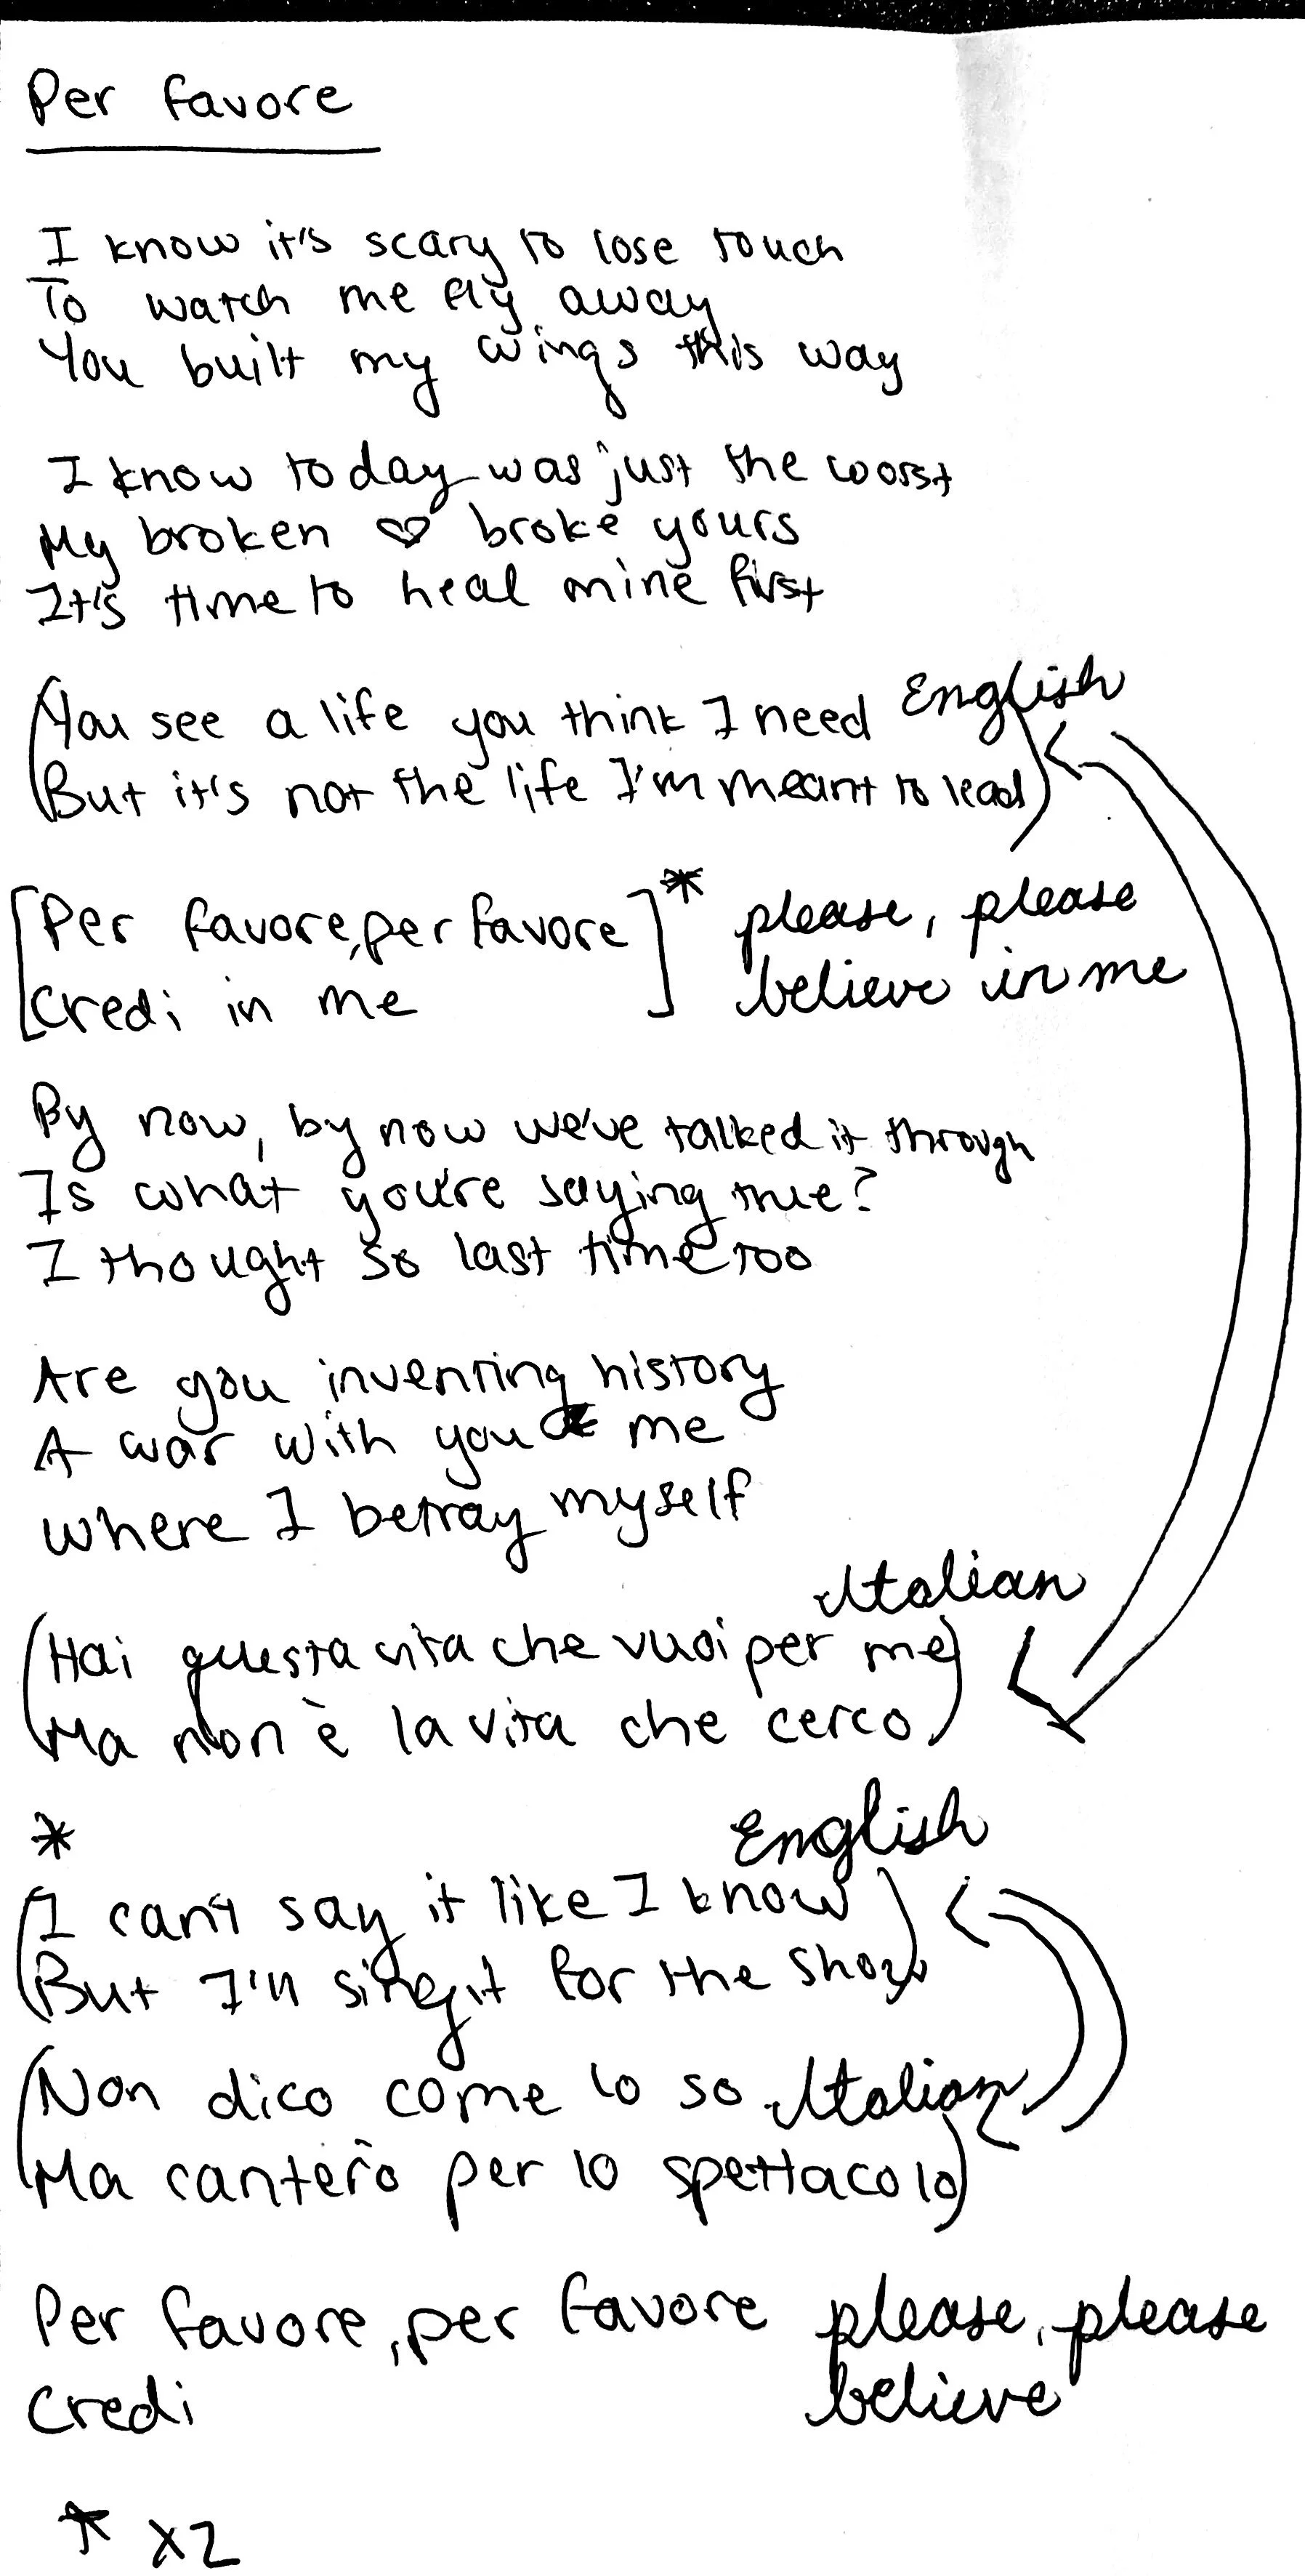 Per favore
I know it's scary to lose touch
To watch me fly away
You built my wings this way
I know today was just the worst
My broken ♡ broke yours
It's time to heal mine first
(You see a life you think I need English
But it's not the life I'm meant to lead)
[Per favore, per favore]* please, please
Credi in me believe in me
By now, by now we've talked it through
Is what you're saying true?
I thought so last time too
Are you inventing history
A war with you & me
where I betray myself
Italian
(Hai questa vita che vuoi per me)
(Ma non è la vita che cerco)
* English
(I can't say it like I know)
(But I'll sing it for the show)
(Non dico come lo so Italian
Ma canterò per lo spettacolo)
Per favore, per favore please, please
Credi believe
* x2